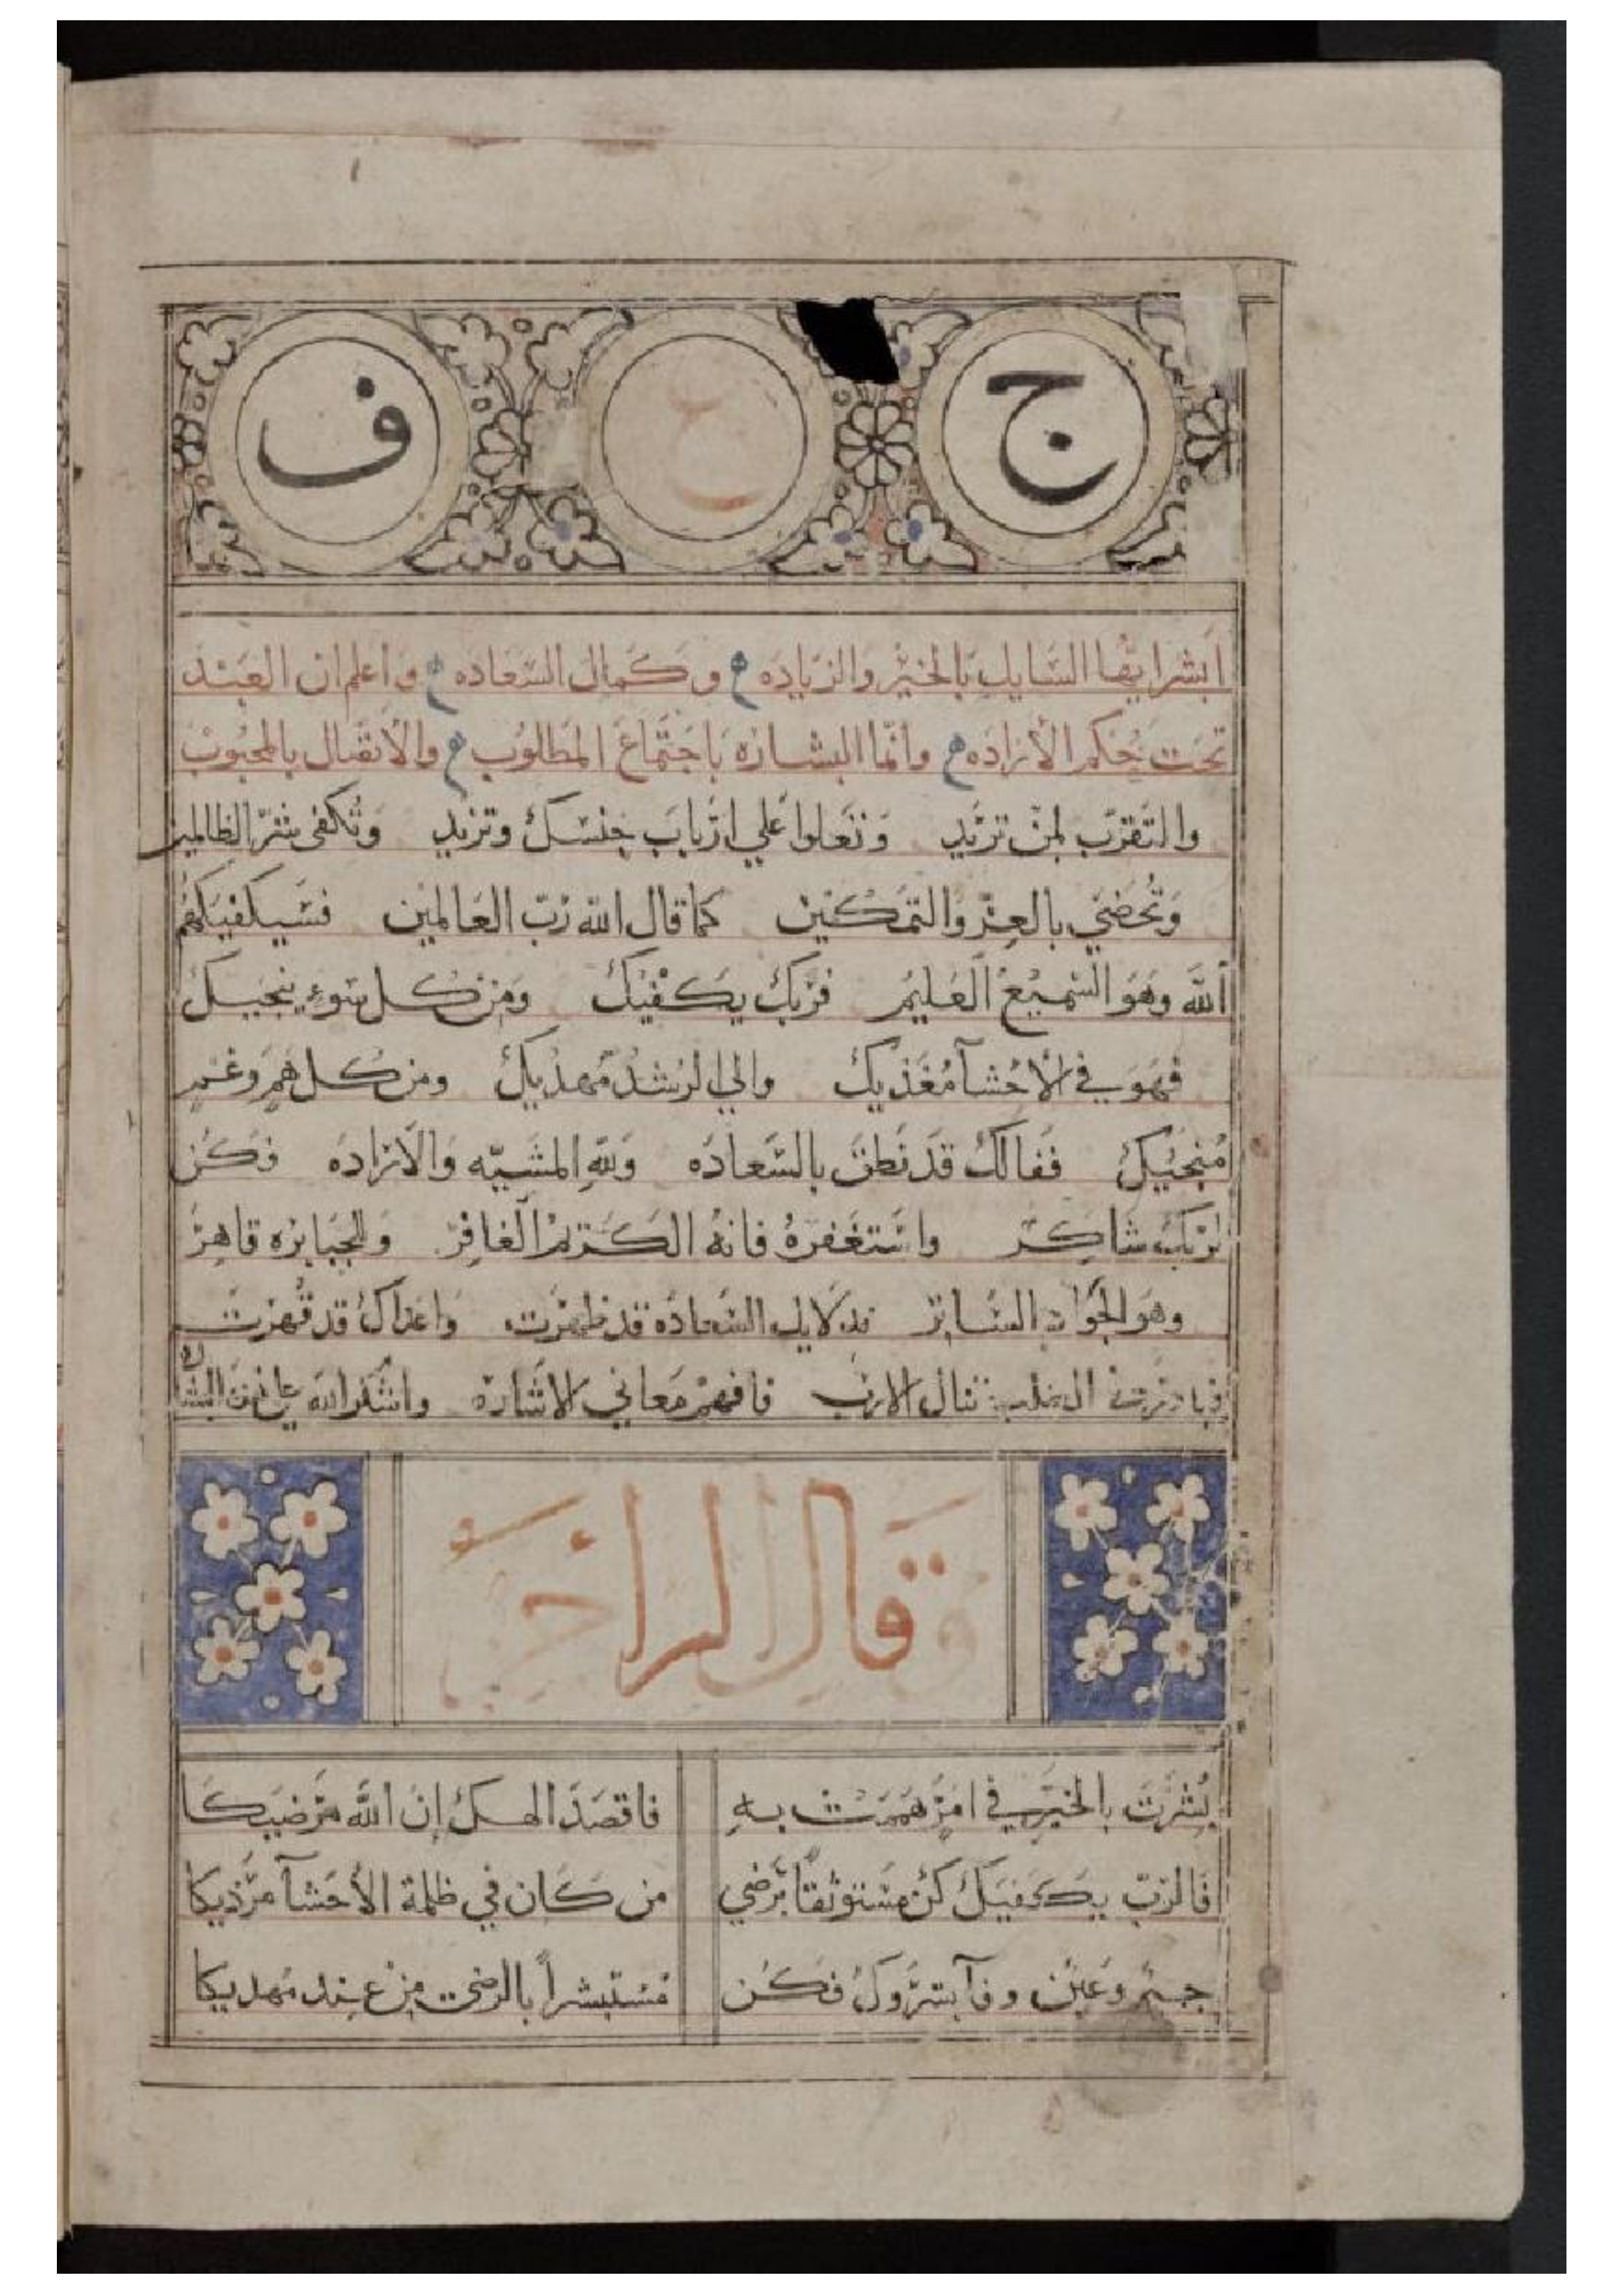 ج ع ف
أبشر ايها السايل بالخير والزياده وكمال السعاده واعلم ان العبد
تحت حكم الأراده وانما البشاره باجتماع المطلوب والأقبال بالمحبوب
والتقرّب لمن تريد وتعلوا علي ارباب جنسك وتزيد وتكفى شرّ الظالمين
وتحضي بالعزّ والتمكين كما قال الله ربّ العالمين فسيكفيكهم
الله وهو السميع العليم فربك يكفيك ومن كل سوء ينجيك
فهو في الأحشآ مغذيك والي الرشد مهديك ومن كل هم وغم
منجيك ففالك قد نطق بالسعاده ولله المشيّه والاراده فكن
لربك شاكر واستغفره فانه الكريم الغافر وللجبابره قاهر
وهو الجواد الساتر فدلايل السعاده قد ظهرت واعداك قد قهرت
تنال الارب فافهم معاني الاشارة واشكر الله على هذه البشاره
قال الراجز
بشرت بالخير في امر هممت به فاقصد الهك إن الله مرضيكا
فالربّ يكفيك كن مستوثقاً برضي من كان في ظلمة الأحشآ مرذيكا
جيم وعين وفآ بشّروك فكن مستبشراً بالرضى من عند مهديكا